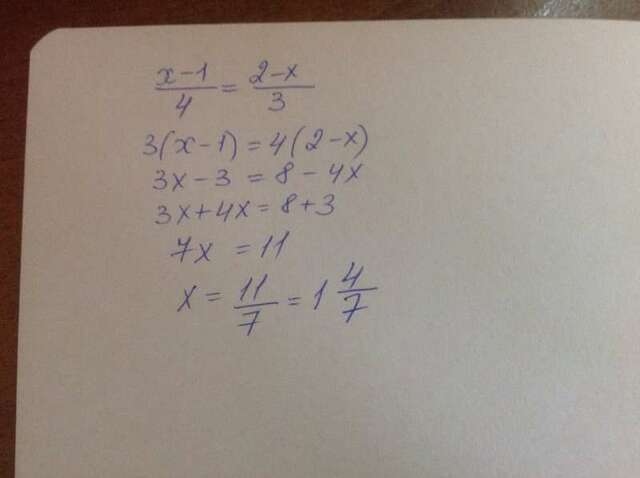 x-1/4 = 2-x/3
3(x-1)=4(2-x)
3x-3 = 8-4x
3x+4x=8+3
7x = 11
x = 11/7 = 1 4/7